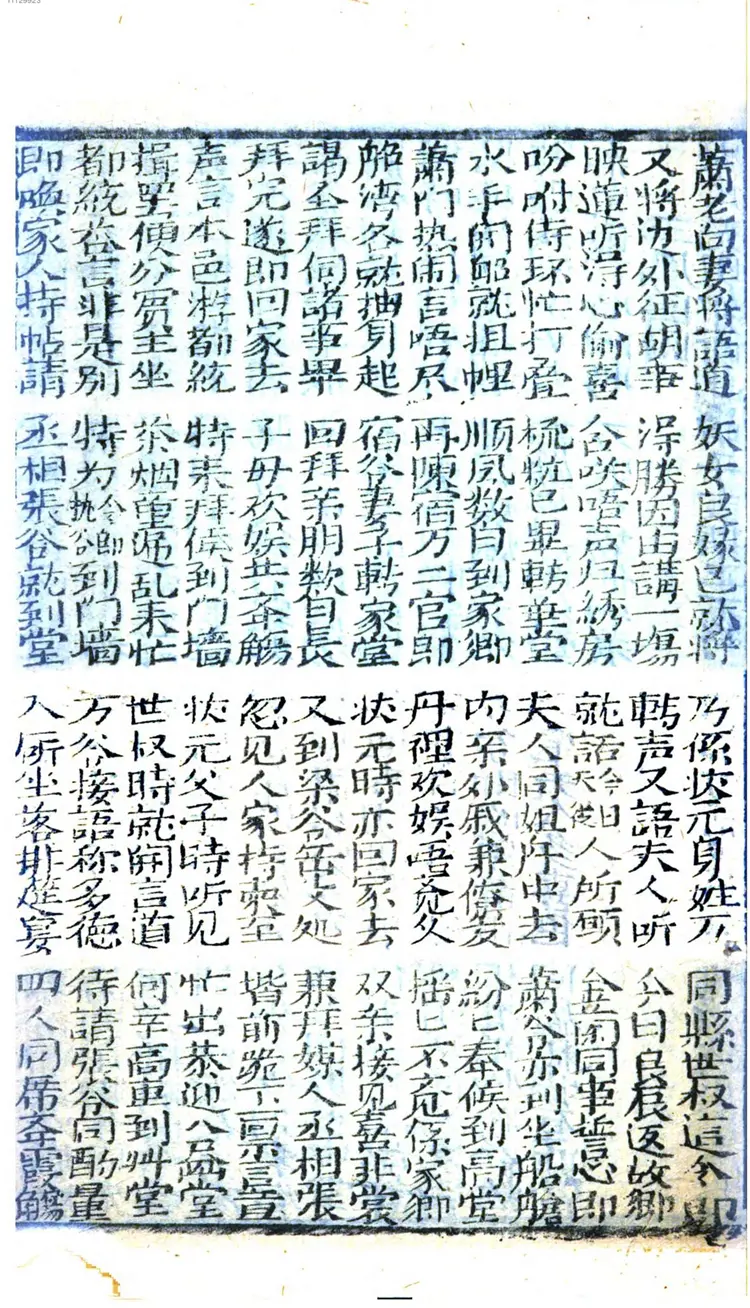 11129923
蕭老向妻將語道 妖女良緣已就將 乃係狀元身姓方 同縣世叔這令郎
又將边外征胡事 淂勝因由講一塲 轉声又語夫人听 今日良辰返故鄉
映道听淂心偷喜 含咲唔声归綉房 就話今日天從人所願 金闺同事誓心郎
吩咐侍环忙打叠 梳粧已畢轉華堂 夫人同姐厅中去 蕭爷亦到坐船艙
水手開 就扯 順風数日到家卿 内亲外戚兼僚友 紛匕奉候到高堂
蕭门热闹言唔尽 再陳 万二官郎 舟裡欢娱唔觉久 摇匕不觉係家卿
船湾各就抽身起 宿爷妻子轉家堂 状元時亦回家去 双亲接见喜非常
謁圣拜伺諸事畢 回拜亲朋数日長 又到梁爷岳丈処 兼拜媒人丞相張
拜完遂即回家去 子母欢娱共举觴 忽见人家持柬至 堦前跪下禀言音
声言本邑游都統 特来拜候到门墙 状元父子時听见 忙出恭迎入 堂
揖罢便分賓主坐 茶烟重递乱来忙 世叔時就開言道 何幸高車到艸堂
都統答言非是别 特为令郎 到门墙 方爷接語称多德 待請張爷同酌量
即唤家人持帖請 丞相張爷就到堂 入厅坐落排筵宴 四人同席举霞觴